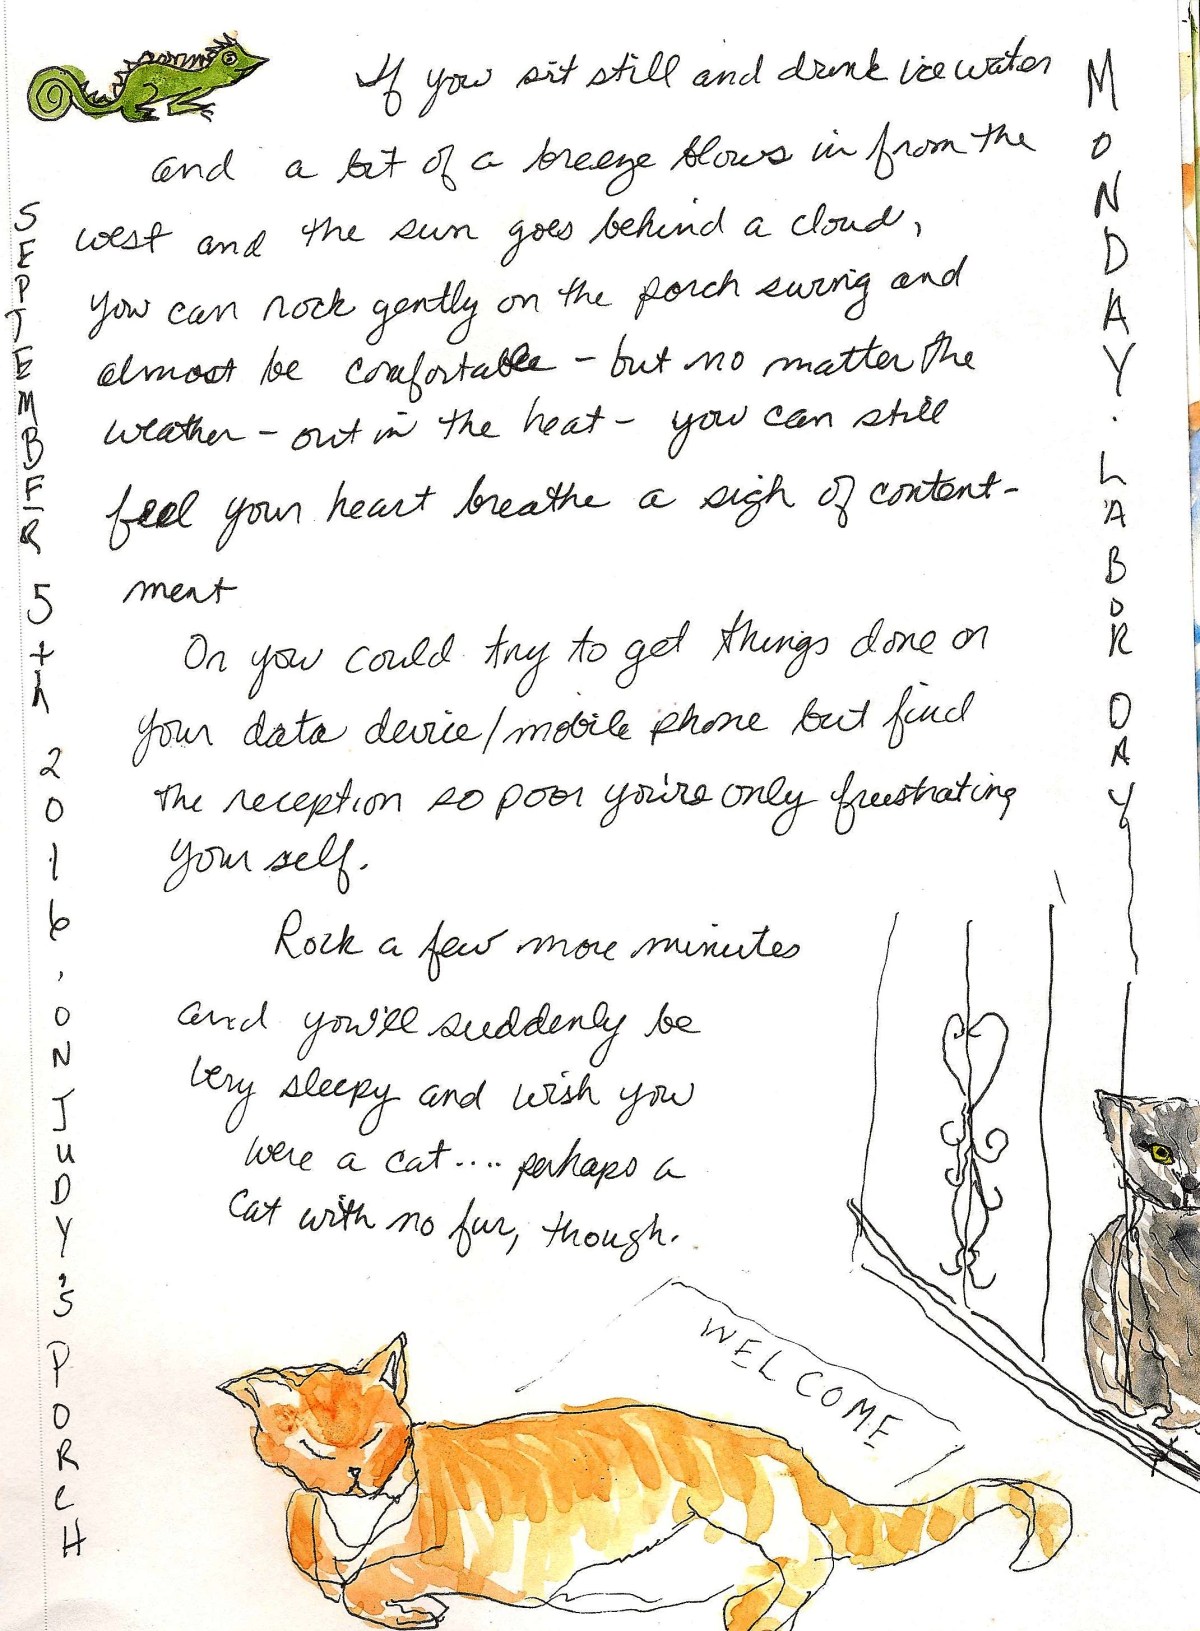 If you sit still and drink ice water
and a bit of a breeze blows in from the
west and the sun goes behind a cloud,
you can rock gently on the porch swing and
almost be comfortable - but no matter the
weather - out in the heat - you can still
feel your heart breathe a sigh of content-
ment
Or you could try to get things done on
your data device/mobile phone but find
the reception so poor you're only frustrating
yourself.
Rock a few more minutes
and you'll suddenly be
very sleepy and wish you
were a cat.... perhaps a
cat with no fur, though.
SEPTEMBER 5th 2016, ON JUDY'S PORCH
MONDAY. LABOR DAY
WELCOME